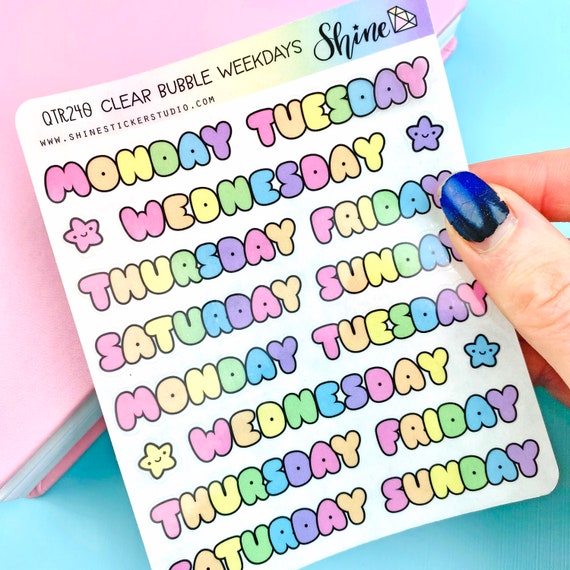 Shine
QTR240 CLEAR BUBBLE WEEKDAYS
WWW.SHINESTICKERSTUDIO.COM
MONDAY TUESDAY
WEDNESDAY
THURSDAY FRIDAY
SATURDAY SUNDAY
MONDAY TUESDAY
WEDNESDAY
THURSDAY FRIDAY
SATURDAY SUNDAY